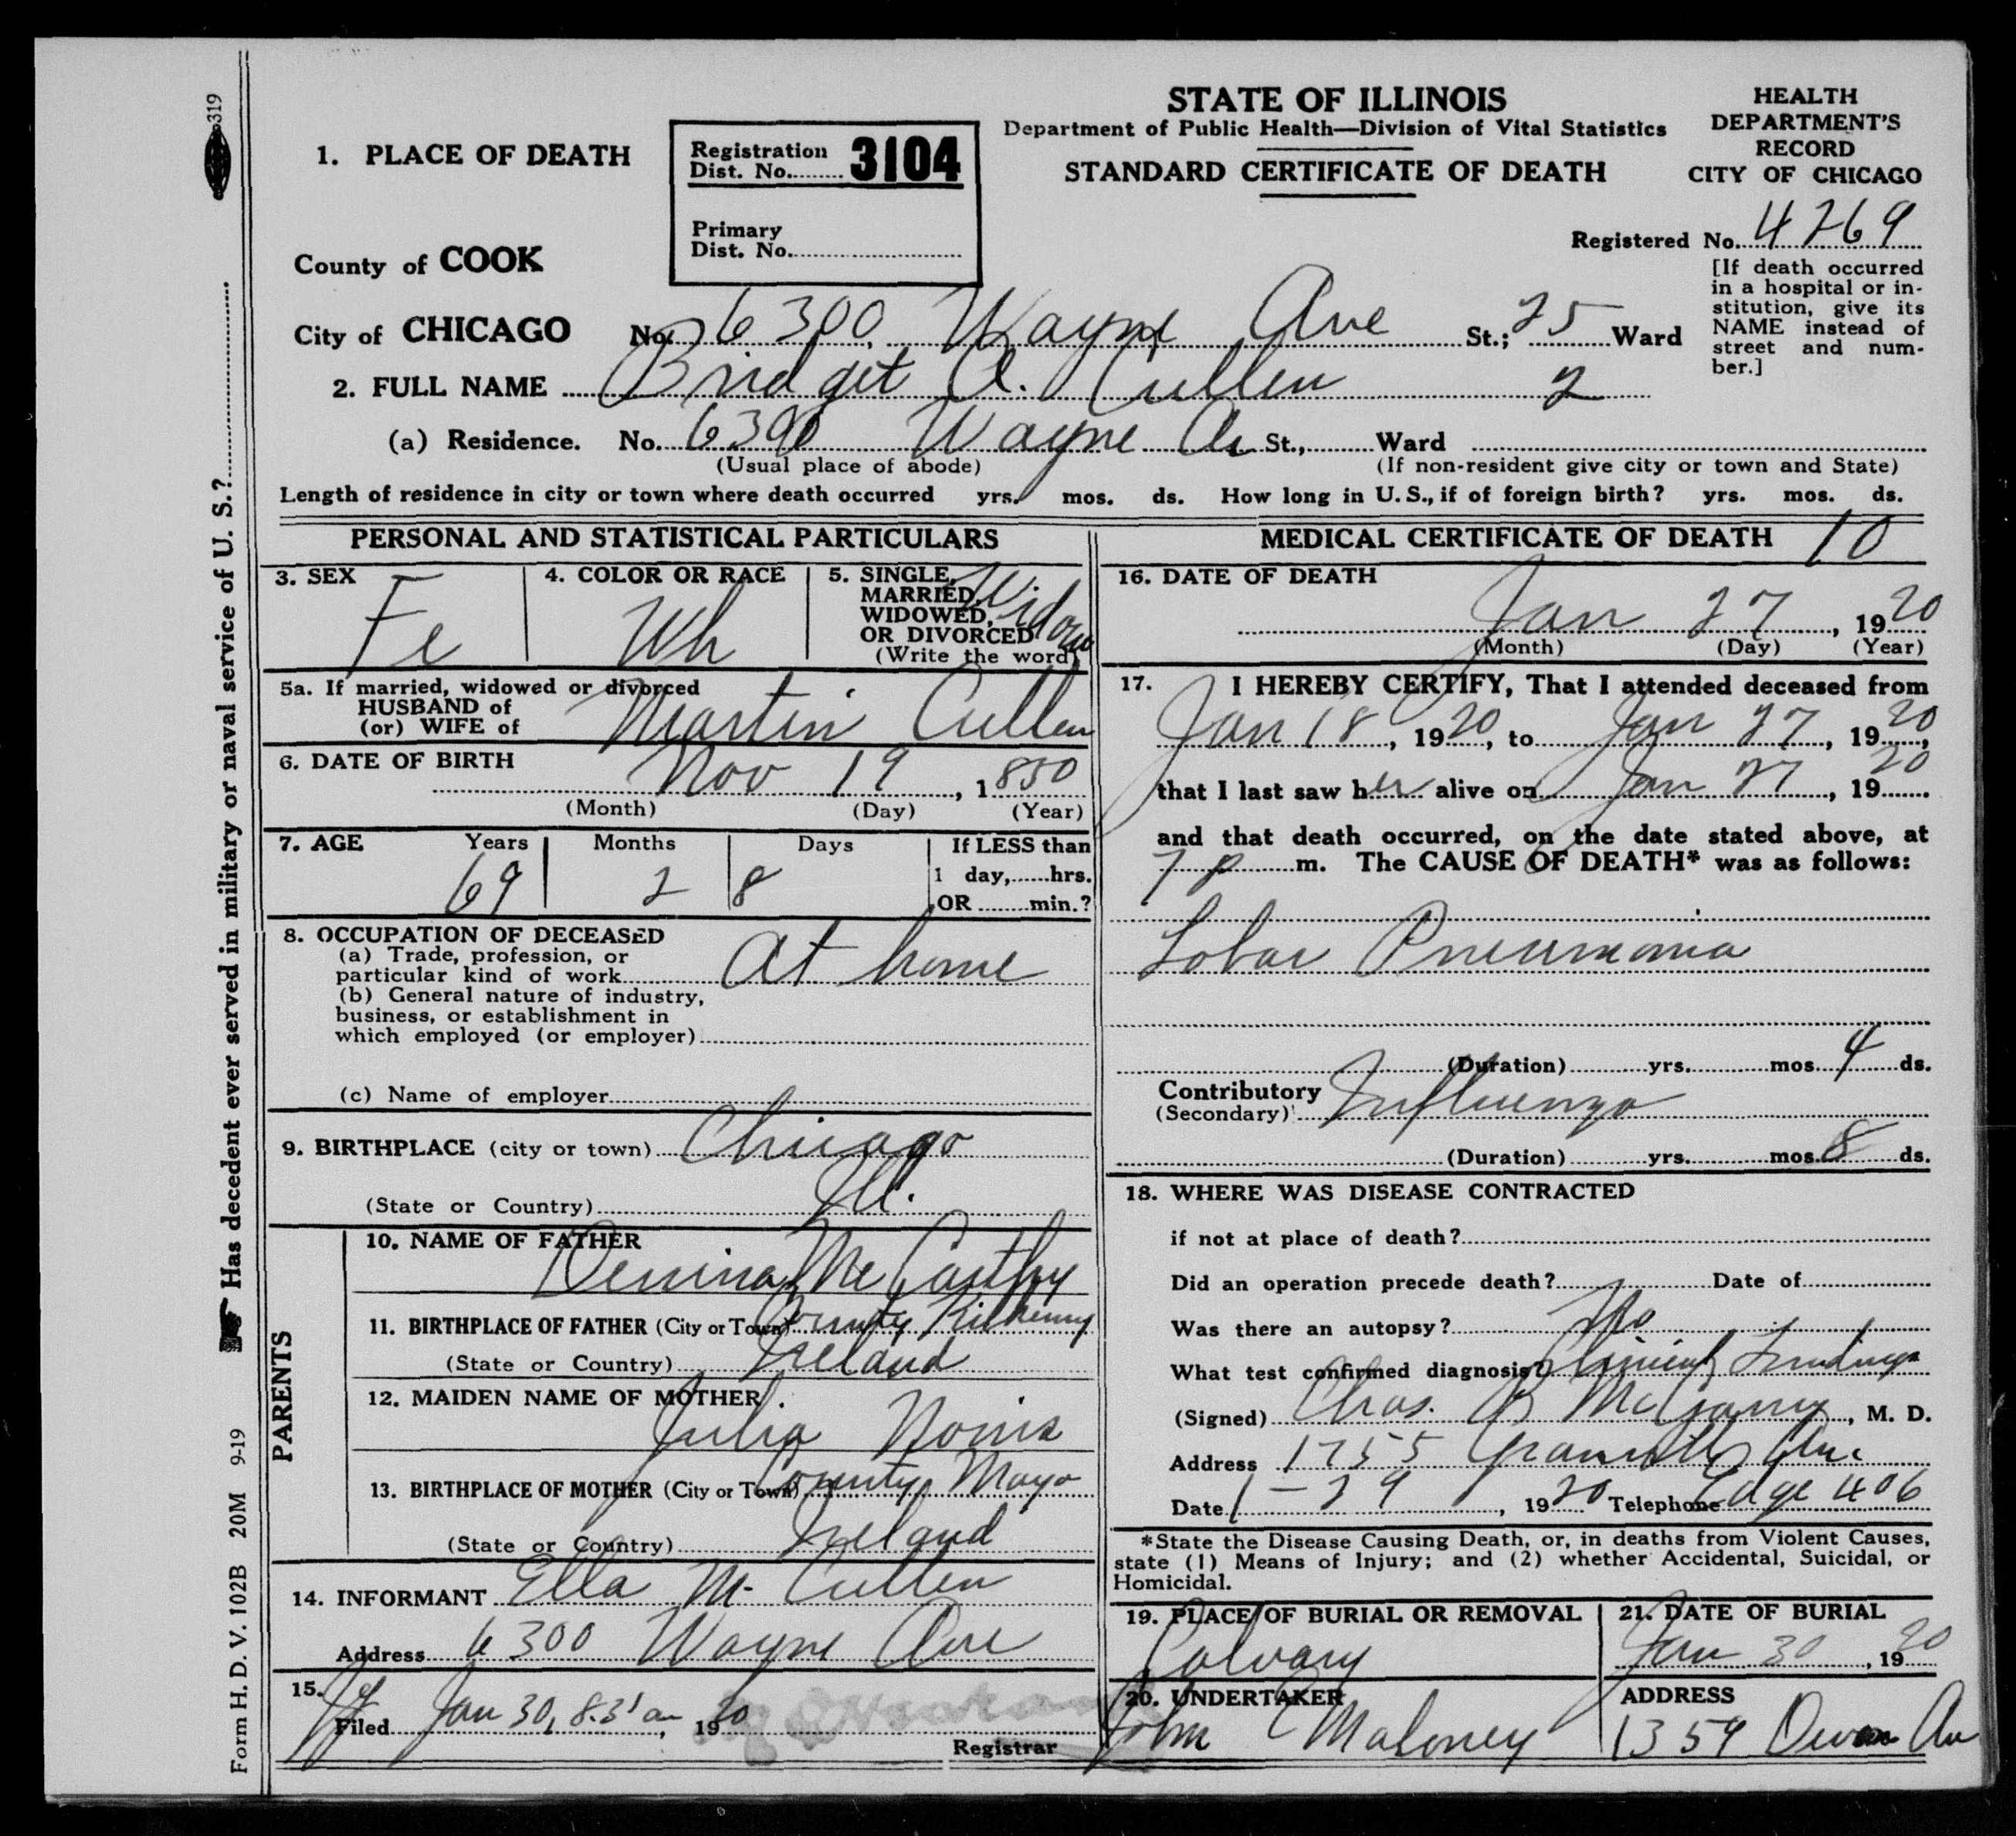 319
STATE OF ILLINOIS
Department of Public Health—Division of Vital Statistics
STANDARD CERTIFICATE OF DEATH
HEALTH
DEPARTMENT'S
RECORD
CITY OF CHICAGO
1. PLACE OF DEATH
Registration
Dist. No. 3104
Primary
Dist. No.
Registered No. 4269
[If death occurred
in a hospital or in-
stitution, give its
NAME instead of
street and num-
ber.]
County of COOK
City of CHICAGO No. 6300 Wayne Ave St.; 25 Ward
2. FULL NAME Bridget A. Cullen 2
(a) Residence. No. 6300 Wayne Av St., Ward
(Usual place of abode) (If non-resident give city or town and State)
Length of residence in city or town where death occurred yrs. mos. ds. How long in U. S., if of foreign birth? yrs. mos. ds.
PERSONAL AND STATISTICAL PARTICULARS
3. SEX
Fe
4. COLOR OR RACE
Wh
5. SINGLE,
MARRIED,
WIDOWED,
OR DIVORCED
(Write the word)
Widow
5a. If married, widowed or divorced
HUSBAND of
(or) WIFE of Martin Cullen
6. DATE OF BIRTH
Nov 19, 1850
(Month) (Day) (Year)
7. AGE Years Months Days If LESS than
69 2 8 1 day, hrs.
OR min.?
8. OCCUPATION OF DECEASED
(a) Trade, profession, or
particular kind of work At home
(b) General nature of industry,
business, or establishment in
which employed (or employer)
(c) Name of employer
9. BIRTHPLACE (city or town) Chicago
(State or Country) Ill.
PARENTS
10. NAME OF FATHER
Dennis McCarthy
11. BIRTHPLACE OF FATHER (City or Town) County Kilkenny
(State or Country) Ireland
12. MAIDEN NAME OF MOTHER
Julia Norris
13. BIRTHPLACE OF MOTHER (City or Town) County Mayo
(State or Country) Ireland
14. INFORMANT Ella M. Cullen
Address 6300 Wayne Ave
15.
Filed Jan 30, 1920
Registrar
MEDICAL CERTIFICATE OF DEATH 10
16. DATE OF DEATH
Jan 27, 1920
(Month) (Day) (Year)
17. I HEREBY CERTIFY, That I attended deceased from
Jan 18, 1920, to Jan 27, 1920,
that I last saw her alive on Jan 27, 1920
and that death occurred, on the date stated above, at
7 p m. The CAUSE OF DEATH* was as follows:
Lobar Pneumonia
(Duration) yrs. mos. 4 ds.
Contributory Influenza
(Secondary)
(Duration) yrs. mos. 8 ds.
18. WHERE WAS DISEASE CONTRACTED
if not at place of death?
Did an operation precede death? Date of
Was there an autopsy? No
What test confirmed diagnosis? Clinical Findings
(Signed) Chas. B McGarry, M. D.
Address 1755 Granville Ave
Date 1-29, 1920 Telephone Edge 406
*State the Disease Causing Death, or, in deaths from Violent Causes,
state (1) Means of Injury; and (2) whether Accidental, Suicidal, or
Homicidal.
19. PLACE OF BURIAL OR REMOVAL
Calvary
21. DATE OF BURIAL
Jan 30, 1920
20. UNDERTAKER
John C Maloney
ADDRESS
1359 Devon Av
Has decedent ever served in military or naval service of U. S.?
Form H. D. V. 102B 20M 9-19